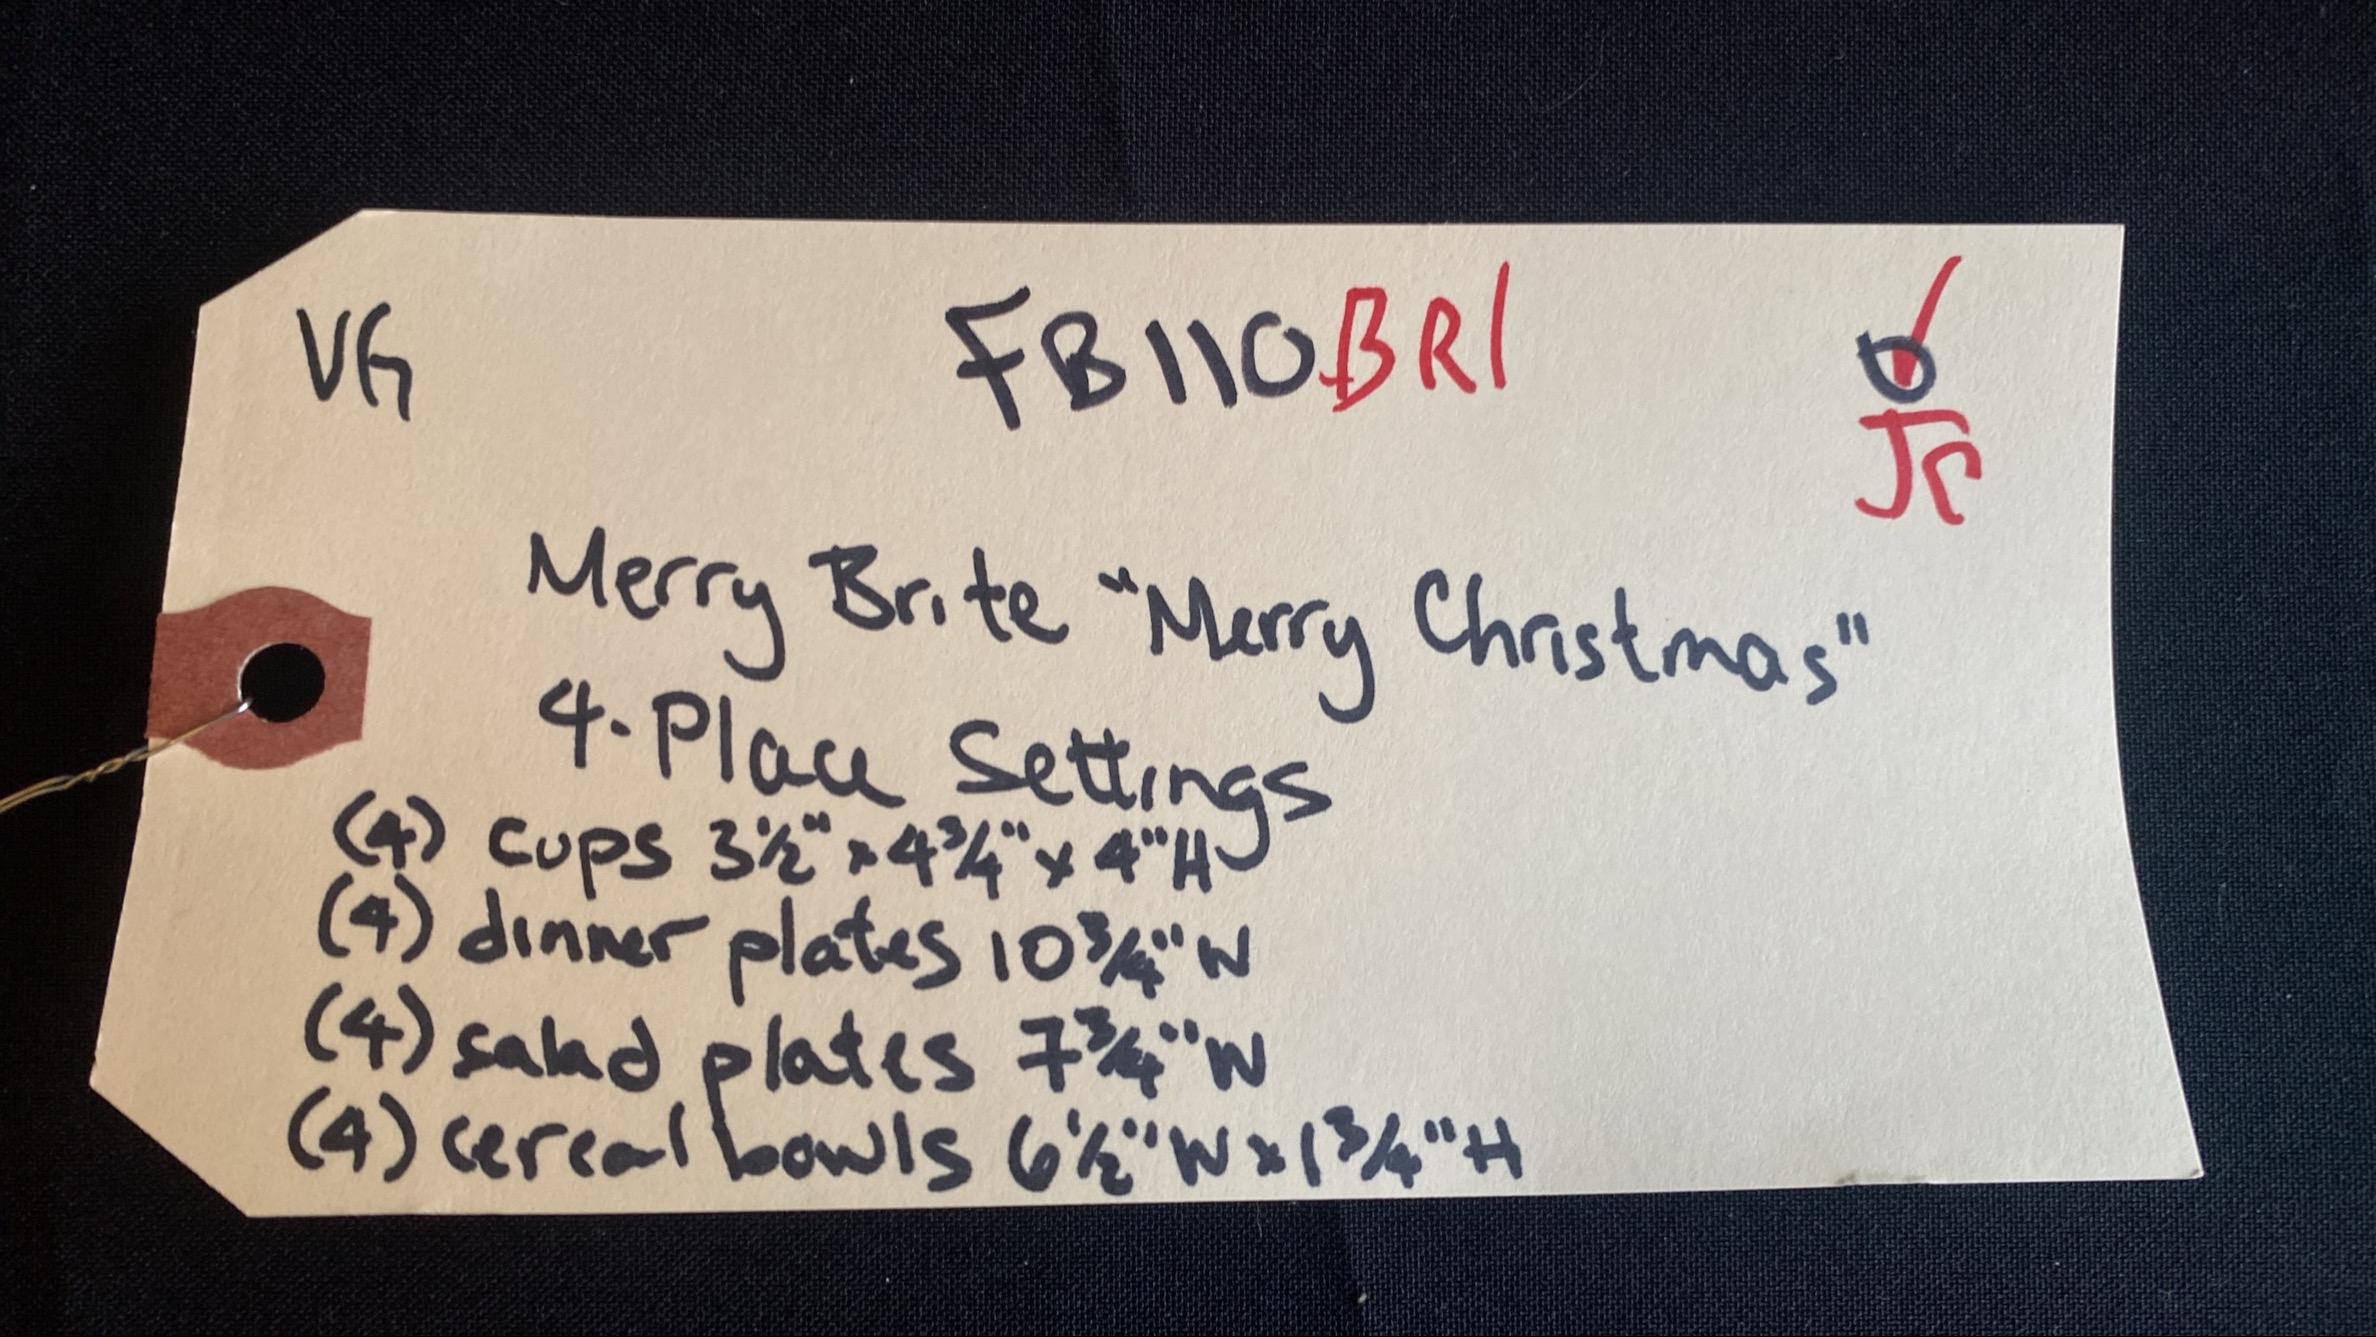 VG FB110BR1
JS
Merry Brite "Merry Christmas"
4-Place Settings
(4) cups 3½" x 4¾" x 4"H
(4) dinner plates 10¾"W
(4) salad plates 7¾"W
(4) cereal bowls 6½"W x 1¾"H